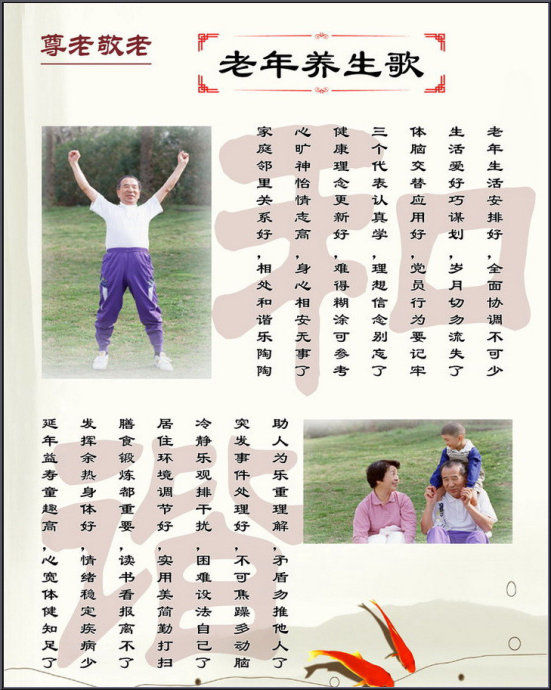 尊老敬老
老年养生歌
老年生活安排好,全面协调不可少
生活爱好巧谋划,岁月切勿流失了
体脑交替应用好,党员行为要记牢
三个代表认真学,理想信念别忘了
健康理念更新好,难得糊涂可参考
心旷神怡情志高,身心相安无事了
家庭邻里关系好,相处和谐乐陶陶
和
助人为乐重理解,矛盾勿推他人了
突发事件处理好,不可焦躁多动脑
冷静乐观排干扰,困难设法自己了
居住环境调节好,实用美简勤打扫
膳食锻炼都重要,读书看报离不了
发挥余热身体好,情绪稳定疾病少
延年益寿童趣高,心宽体健知足了
谐